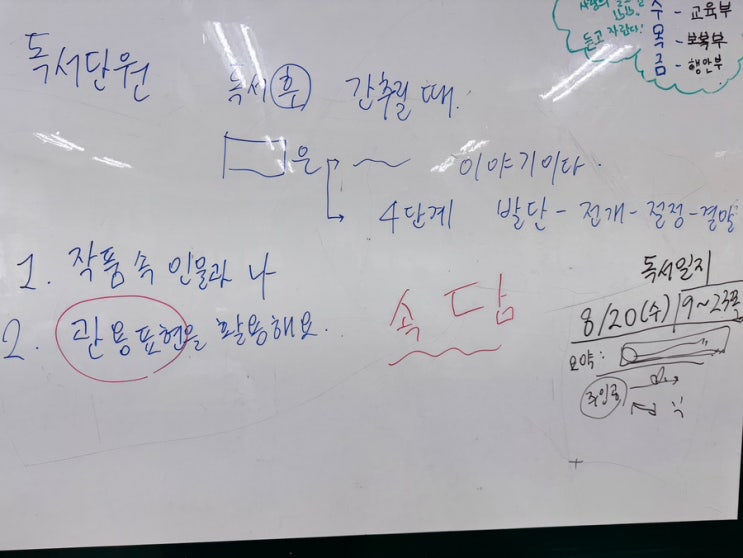 독서단원
독서 후 간추릴 때.
은 이야기이다.
4단계 발단 - 전개 - 절정 - 결말
1. 작품 속 인물과 나
2. 관용표현을 활용해요.
속담
듣고 자람다!
수 - 교육부
목 - 보복부
금 - 행안부
독서일지
8/20(수) 9~23쪽
요약:
주인공